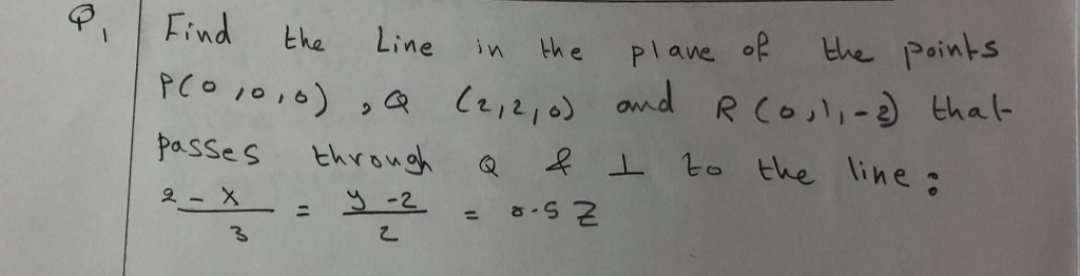 Q1 Find the Line in the plane of the points
P(0,0,0), Q (2,2,0) and R (0,1,-2) that
passes through Q & ⊥ to the line:
2-x/3 = y-2/2 = 0.5 Z